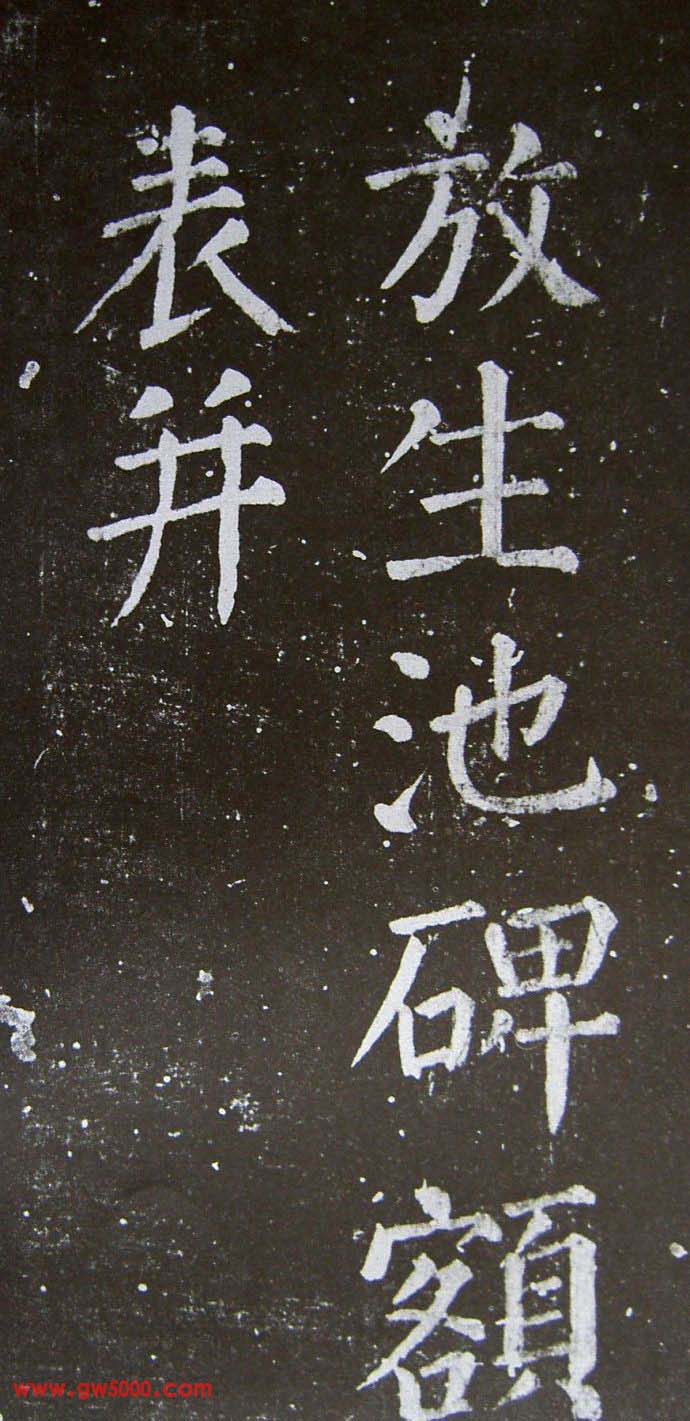 放生池碑額
表并
www.gw5000.com